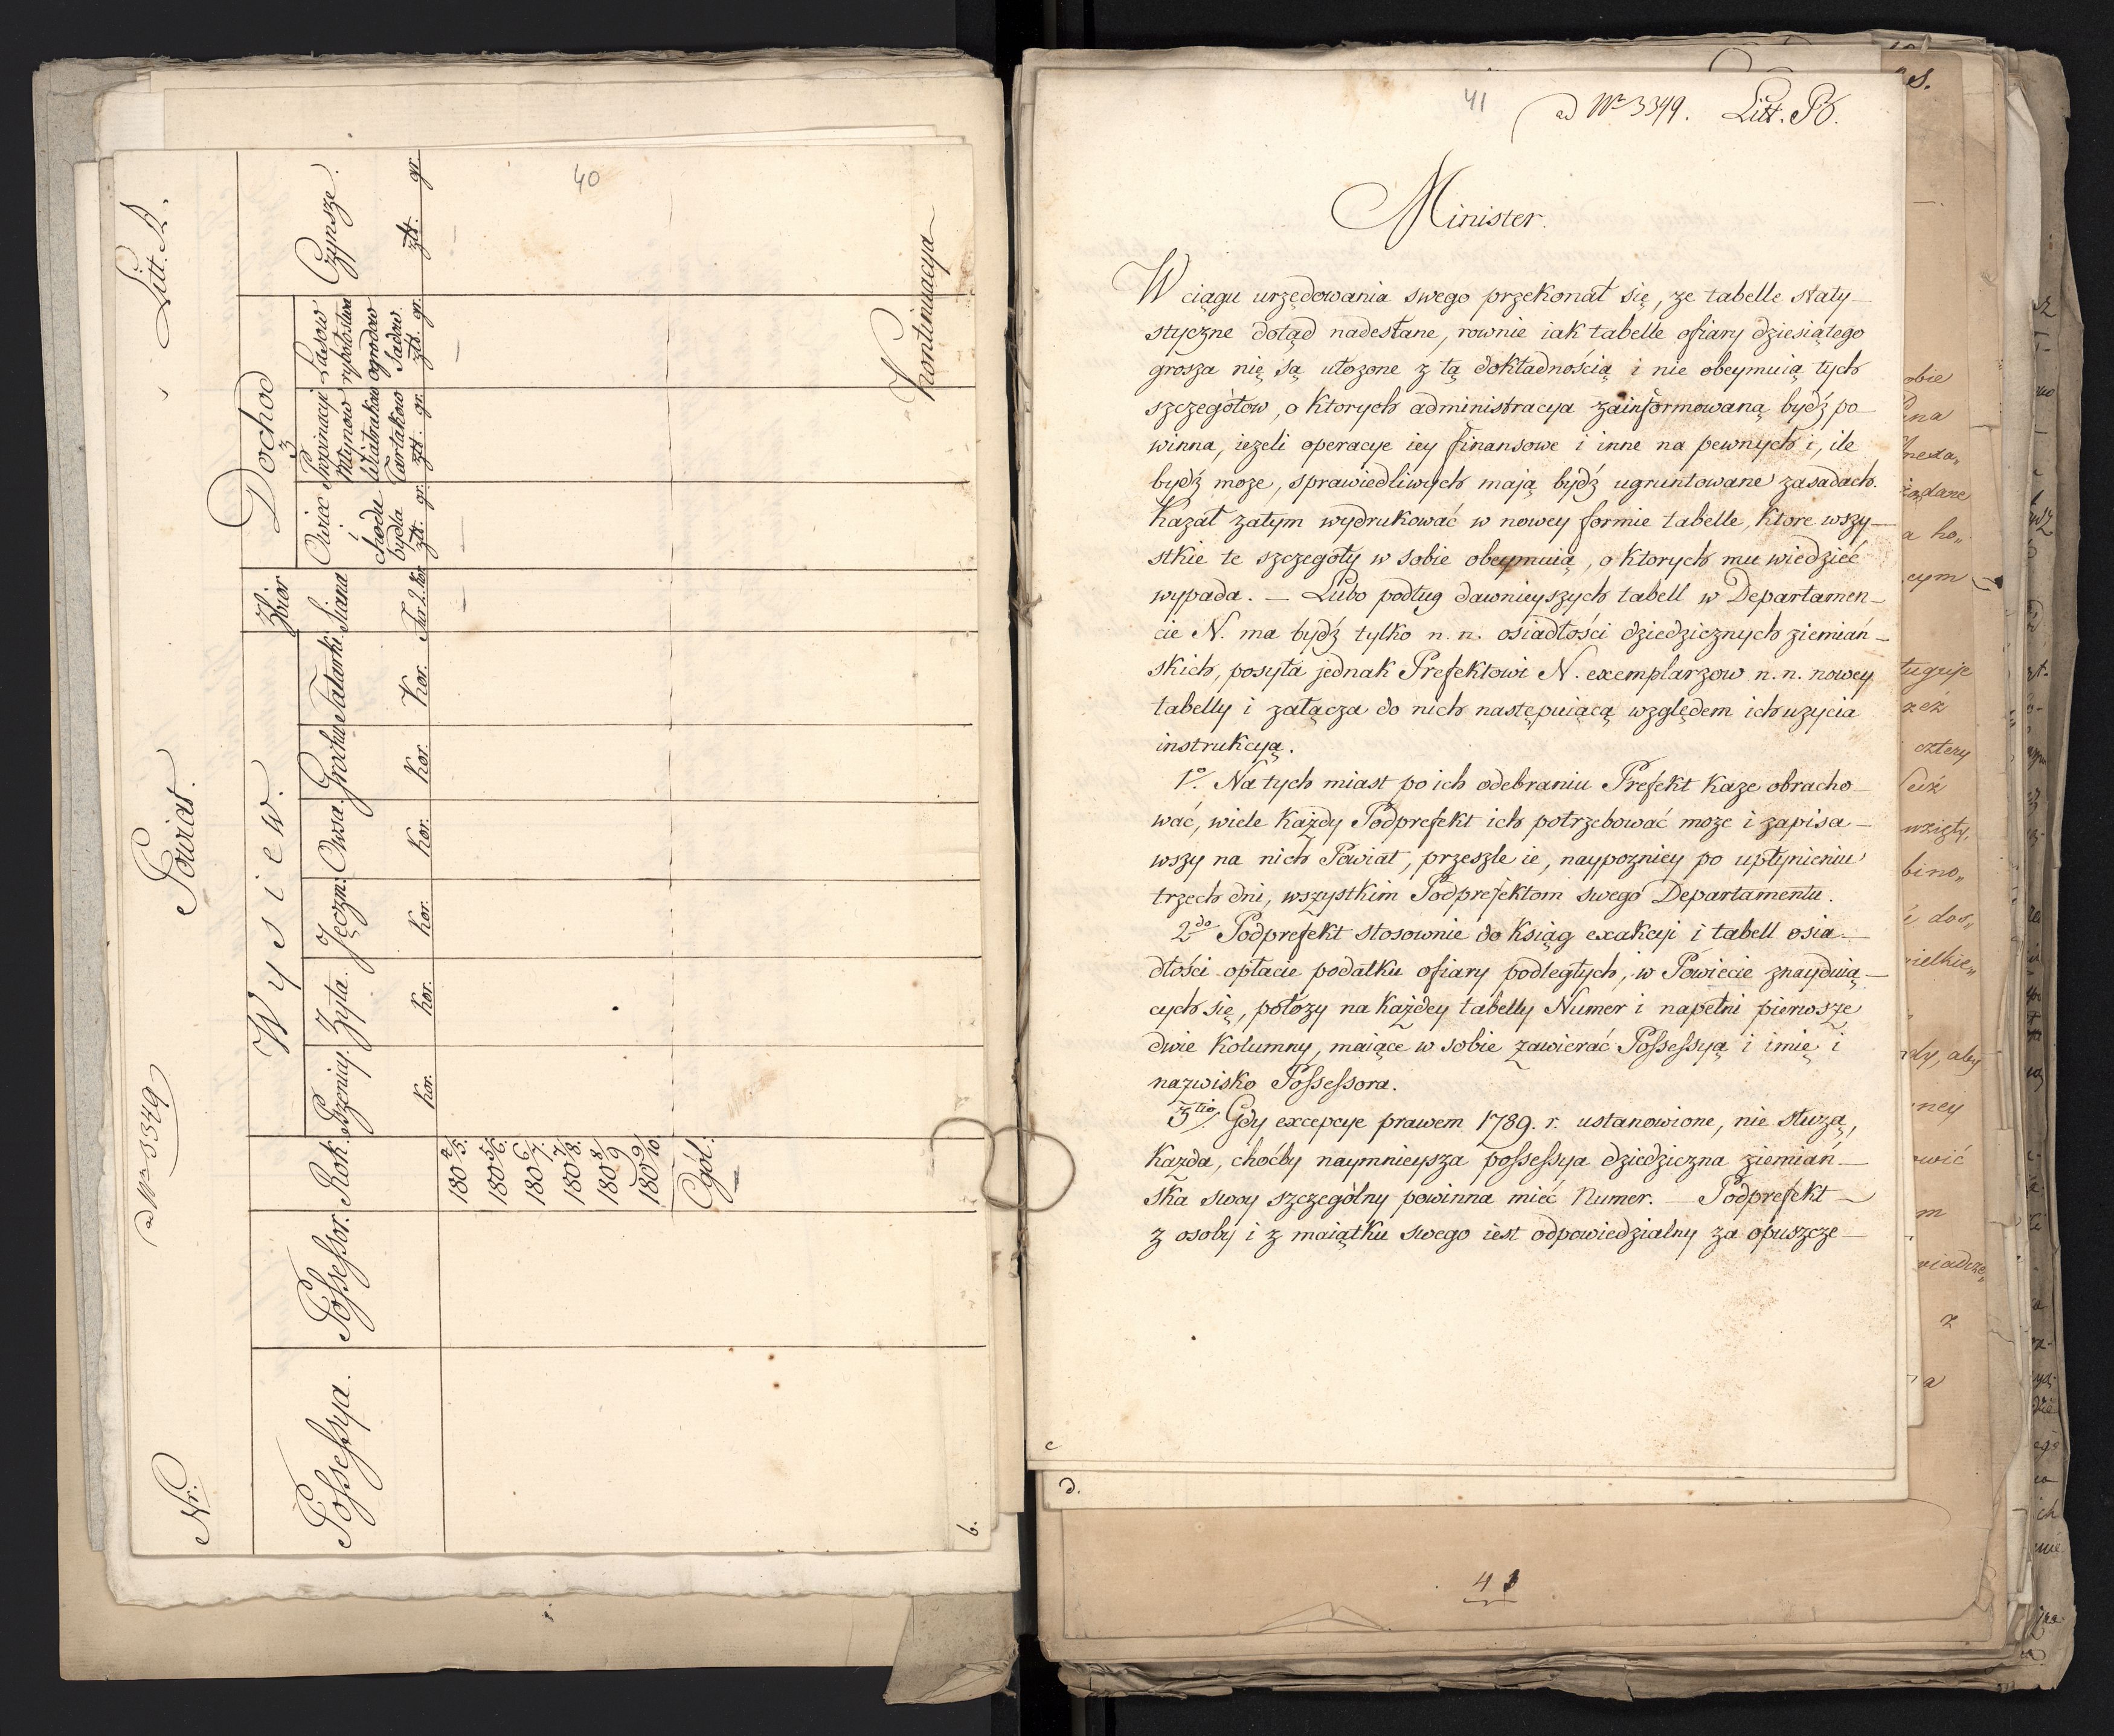 40
ad Nro 3349
Litt. A.
Nr.
Powiat.
Possessya.
Possessor.
Rok.
Wysiew.
Pszenicy.
Żyta.
Jęczm:
Owsa.
Grochu
Tatarki
Zbior
Siana
Dochod
z
Owiec
i
chodu
bydła
Propinacyi
Młynow
Wiatrakow
Tartakow
Lasow
rybołostwa
ogrodow
Sadow.
Czynsze.
Kor.
Kor.
Kor.
Kor.
Kor.
Kor.
złt. gr.
złt. gr.
złt. gr.
złt. gr.
180 4/5.
180 5/6.
180 6/7.
180 7/8.
180 8/9
180 9/10
Ogół:
Kontinuacya
b.
41
ad Nro 3349. Litt. B.
Minister.
W ciągu urzędowania swego przekonał się, ze tabelle staty-
styczne dotąd nadesłane, rownie iak tabelle ofiary dziesiątego
grosza nię są ułozone z tą dokładnością i nie obeymuią tych
szczegołow, o ktorych administracya zainformowaną bydź po-
winna, iezeli operacye iey finansowe i inne na pewnych i, ile
bydź moze, sprawiedliwych mają bydź ugruntowane zasadach.
Kazał zatym wydrukować w nowey formie tabelle, ktore wszy-
stkie te szczegoły w sobie obeymuią, o ktorych mu wiedzieć
wypada. — Lubo podług dawnieyszych tabell w Departamen-
cie N. ma bydź tylko n. n. osiadłości dziedzicznych ziemiań-
skich, posyła jednak Prefektowi N. exemplarzow n. n. nowey
tabelly i załącza do nich następuiącą względem ich uzycia
instrukcyą.
1o. Na tych miast po ich odebraniu Prefekt kaze obracho-
wać, wiele każdy Podprefekt ich potrzebować moze i zapisa-
wszy na nich Powiat, przeszle ie, naypozniey po upłynieniu
trzech dni, wszystkim Podprefektom swego Departamentu.
2do Podprefekt stosownie do ksiąg exakcyi i tabell osia-
dłości opłacie podatku ofiary podległych, w Powiecie znayduią-
cych się, położy na każdey tabelly Numer i napełni pierwsze
dwie kolumny, maiące w sobie zawierać Possessyą i imię i
nazwisko Possessora.
3tio, Gdy excepcye prawem 1789. r. ustanowione, nie służą,
każda, choćby naymnieysza possessya dziedziczna ziemiań-
ska swoy szczególny powinna mieć Numer. — Podprefekt —
z osoby i z maiątku swego iest odpowiedzialny za opuszcze-
c
d.
41
obie
cym
cztery
wzięty,
z
a